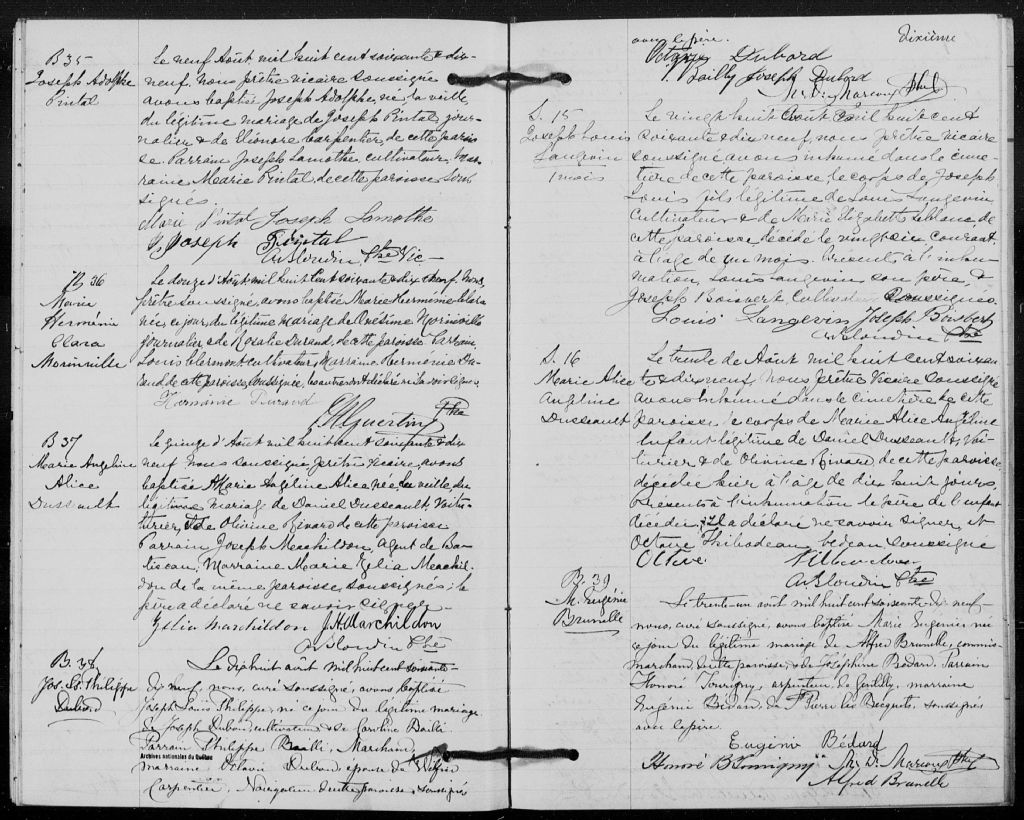 B 35
Joseph Adolphe
Pintal
Le neuf Août mil huit cent soixante & dix-
neuf, nous prêtre vicaire soussigné
avons baptisé Joseph Adolphe, né la veille,
du légitime mariage de Joseph Pintal, jour-
nalier & de Léonore Carpentier, de cette parois
se. Parrain Joseph Lamothe, cultivateur, Mar
raine Marie Pintal, de cette paroisse sous
signés.
Marie Pintal Joseph Lamothe
Joseph Pintal
A Blondin, Ptre Vic-
B 36
Maria
Herménie
Clara
Morinville
Le douze d'Août mil huit cent soixante & dix neuf, nous
prêtre soussigné, avons baptisé Marie Herménie Clara
née, ce jour, du légitime mariage de Onésime Morinville
journalier & de Rosalie Durand, de cette paroisse. Parrain,
Louis Clermont cultivateur, Marraine Herménie Du-
rand de cette paroisse, soussignée, les autres ont déclaré ne savoir signer.
Herminie Durand
Ptre
B 37
Marie Angeline
Alice
Dussault
Le quinze d'Août mil huit cent soixante & dix
neuf nous soussigné prêtre vicaire, avons
baptisé Marie Angeline Alice née, la veille, du
légitime mariage de Daniel Dussault, Voitu-
turier, & de Olivine Rivard de cette paroisse
Parrain Joseph Marchildon, Agent de Ba-
tiscan, Marraine Marie Zélia Marchil-
don de la même paroisse, soussignés; le
père a déclaré ne savoir signer
Zélia Marchildon J.H. Marchildon
A Blondin Ptre
B. 38
Jos. Ls. Philippe
Dubord
Le dix huit août mil huit cent soixante-
dix neuf, nous, curé soussigné, avons baptisé
Joseph Louis Philippe, né ce jour du légitime mariage
de Joseph Dubord, cultivateur & de Caroline Bailli
Parrain Philippe Bailli, Marchand,
Archives nationales du Québec
marraine Octavie Dubord, épouse de Wilfrid
Carpentier, Navigateur de cette paroisse, soussignés
avec le père.
Dixième
Octavie Dubord
P. Bailly Joseph Dubord
Ptre
S. 15
Joseph Louis
Langevin
1 mois
Le vingt huit Août mil huit cent
soixante & dix neuf, nous prêtre vicaire
soussigné avons inhumé dans le cime-
tière de cette paroisse le corps de Joseph
Louis fils légitime de Louis Langevin
Cultivateur & de Marie Elizabeth Leblanc de
cette paroisse, décédé le vingt six courant
à l'âge de un mois. Présents à l'inhu-
mation, Louis Langevin son père, &
Joseph Boisvert, Cultivateur soussignés
Louis Langevin Joseph Boisvert
A Blondin Ptre
S. 16
Marie Alice
Angéline
Dussault
Le trente de Août mil huit cent soixan-
te & dix neuf, Nous prêtre Vicaire soussigné
avons inhumé dans le cimetière de cette
paroisse, le corps de Marie Alice Angéline
Enfant légitime de Daniel Dussault, Voi-
turier & de Olivine Rivard de cette paroisse,
décédée hier à l'âge de dix huit jours,
Présents à l'inhumation le père de l'enfant
décédé; Il a déclaré ne savoir signer, et
Octave Thibodeau, bedeau soussigné
Octave
A Blondin Ptre
B. 39
M. Eugénie
Brunelle
Le trente-un août mil huit cent soixante-dix neuf-
nous, curé soussigné, avons baptisé Marie Eugénie née
ce jour du légitime mariage de Alfred Brunelle, commis-
marchand de cette paroisse & de Joséphine Bédard. Parrain
Honoré Tourigny, arpenteur de Gentilly, marraine
Eugénie Bédard, de St Pierre les Becquets, soussignés
avec le père.
Eugénie Bédard
Honoré B Tourigny Ptre
Alfred Brunelle